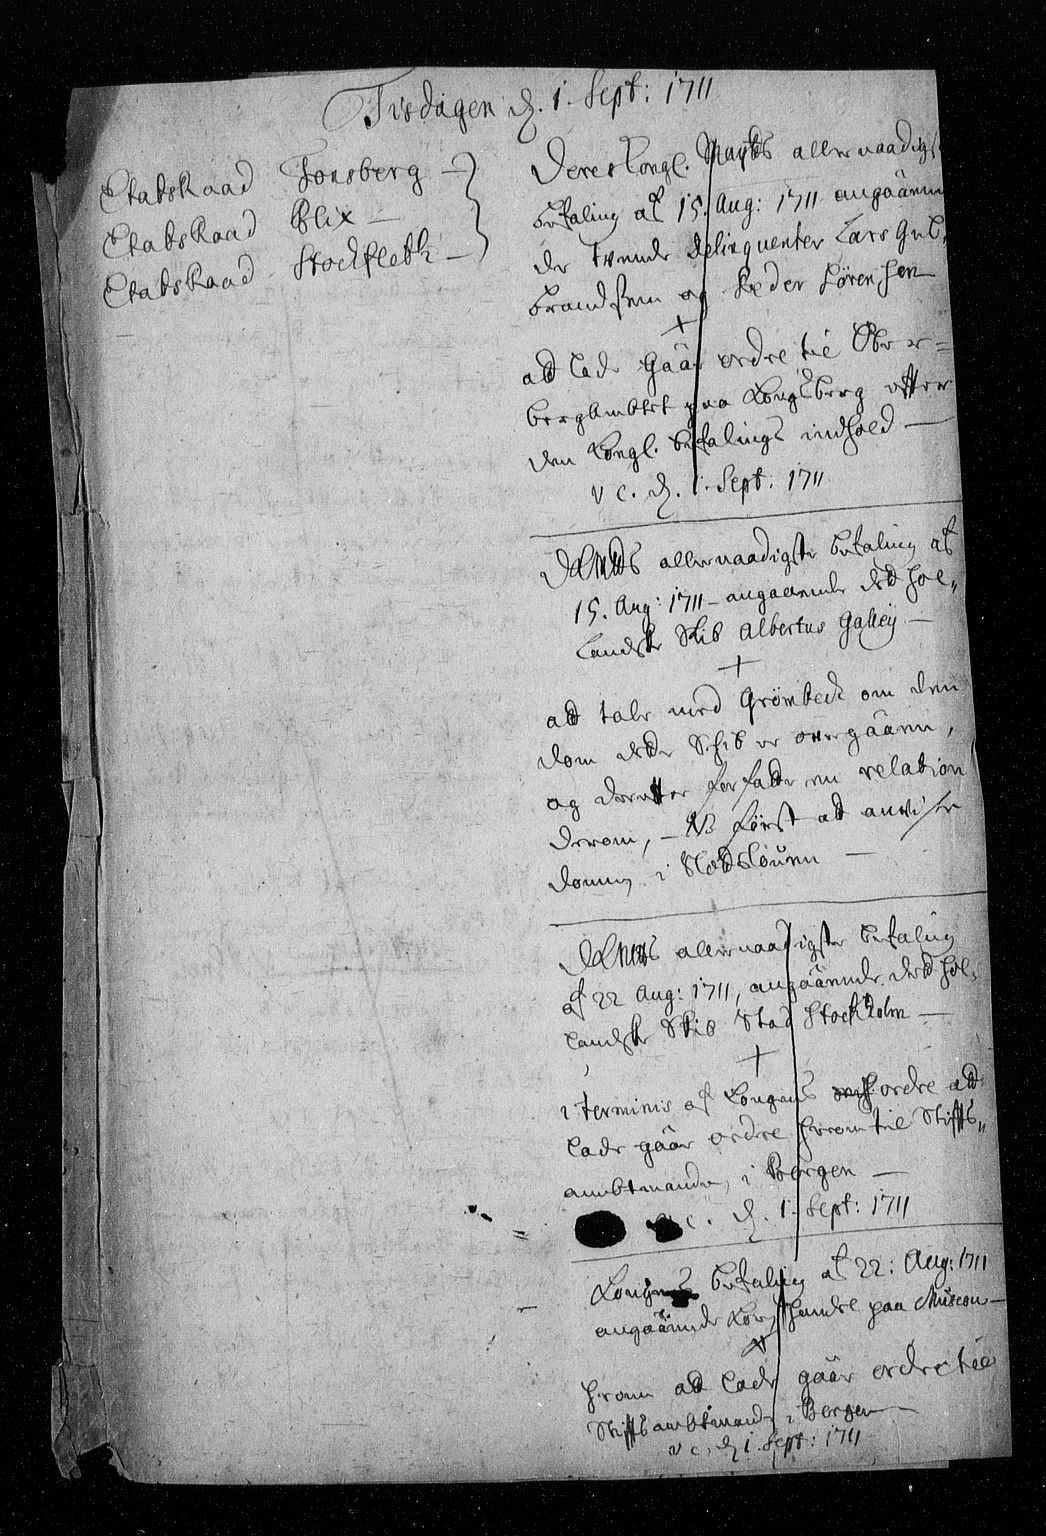 Tisdagen d. 1. Sept: 1711
Etatsraad Tonsberg
Etatsraad Blix
Etatsraad Stockfleth
Deres Kongl. Mayts allernaadigst
befaling af 15. Aug: 1711 angaaenn
de tvende delinquenter Lars Gul-
brandsen og Peder Sørensen
at lade gaar ordre til Ober=
bergambtet paa Kongsberg efter
den Kongl. befalings indhold
v c. d. 1. Sept: 1711
DKMts allernaadigste befaling af
15. Aug: 1711 - angaaende det hol,,
landske Skib Albertus Galleij
at tale med Grønbeck om den
dom dette Schib er overgaaen,
og derefter forfatte en relation
derom, - NB først at anvise
domen i Slotsloven
DKMts allernaadigste befaling
af 22 Aug: 1711, angaaende det hol-
landske Skib Stad Stockholm
i terminis af Kongens ordre at
lade gaar ordre herom til Stifts,,
ambtmanden i Bergen
c. d. 1. Sept: 1711
Kongens befaling af 22: Aug: 1711
angaaende handel paa Muscou-
herom at lade gaar ordre til
Stiftsambtmanden i Bergen
v c. d. 1. Sept: 1711